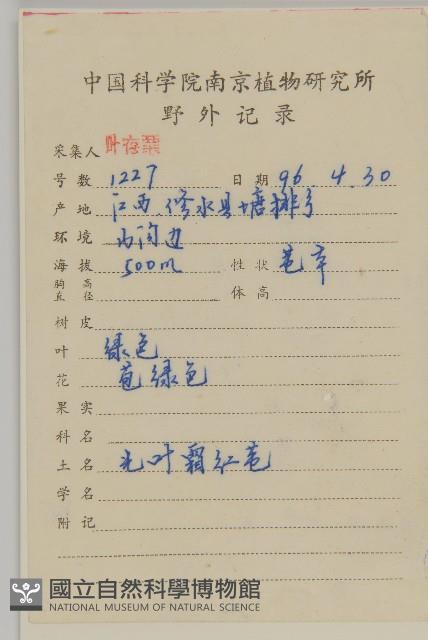 中国科学院南京植物研究所
野外记录
采集人 叶存粟
号数 1227 日期 96.4.30
产地 江西、修水县塘排
环境 沟边
海拔 500m 性状
胸高直径 体高
树皮
叶 绿色
花 苞绿色
果实
科名
土名 光叶霸红
学名
附记
國立自然科學博物館
NATIONAL MUSEUM OF NATURAL SCIENCE